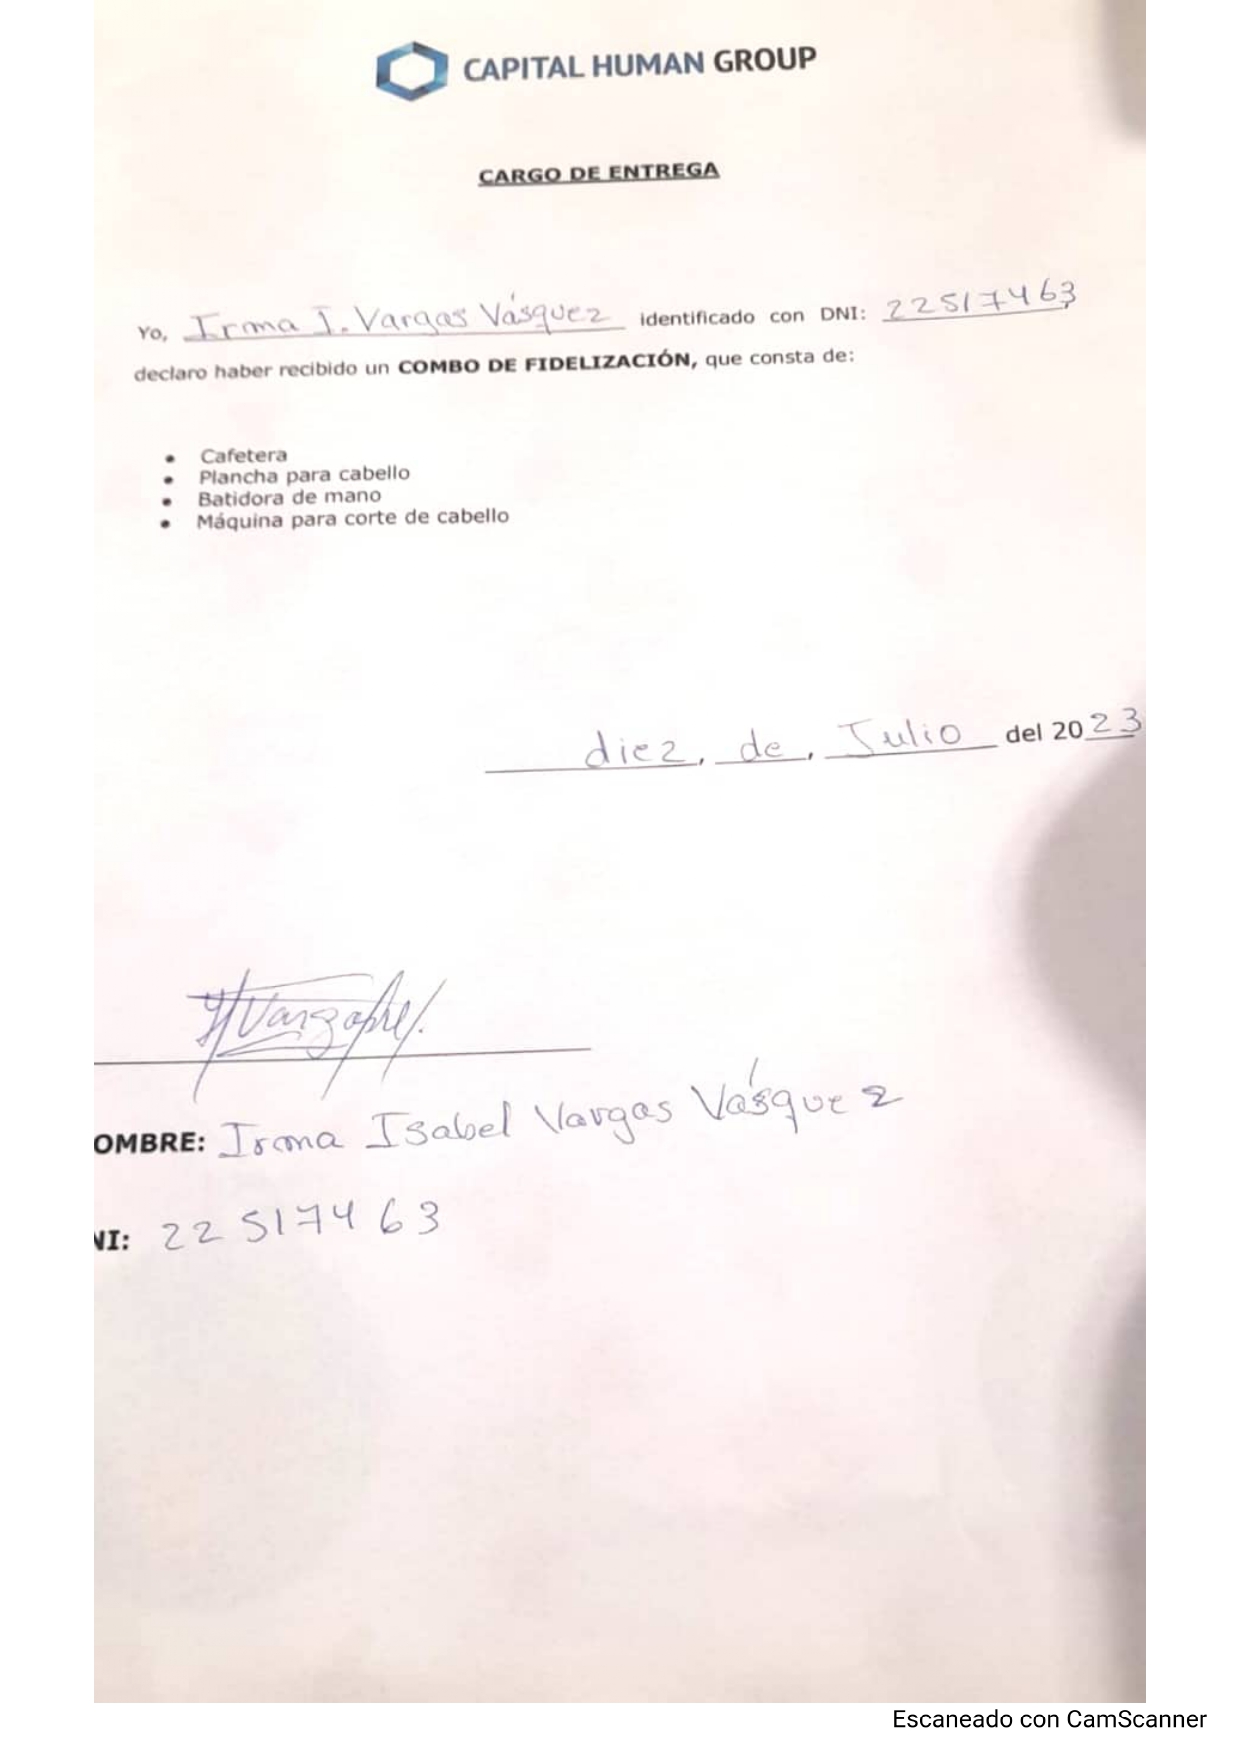 CAPITAL HUMAN GROUP
CARGO DE ENTREGA
Yo, Irma I. Vargas Vásquez identificado con DNI: 22517463,
declaro haber recibido un COMBO DE FIDELIZACIÓN, que consta de:
• Cafetera
• Plancha para cabello
• Batidora de mano
• Máquina para corte de cabello
diez, de, Julio del 2023
OMBRE: Irma Isabel Vargas Vásquez
NI: 22517463
Escaneado con CamScanner